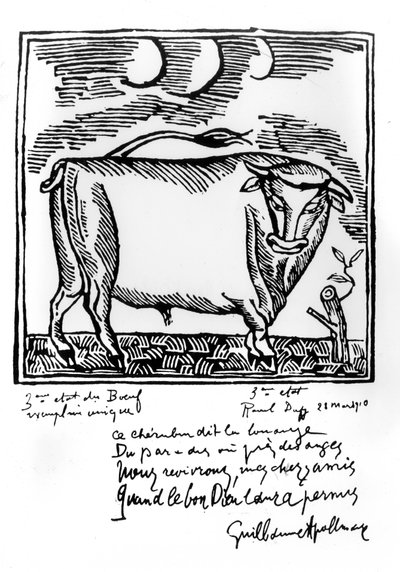 3ème etat du Bœuf
exemplaire unique
3ème etat
Raoul Dufy 28 Mars 1910
Ce chérubin dit la louange
Du paradis où près des anges
Nous revivrons, mes chers amis
Quand le bon Dieu l'aura permis
Guillaume Apollinaire